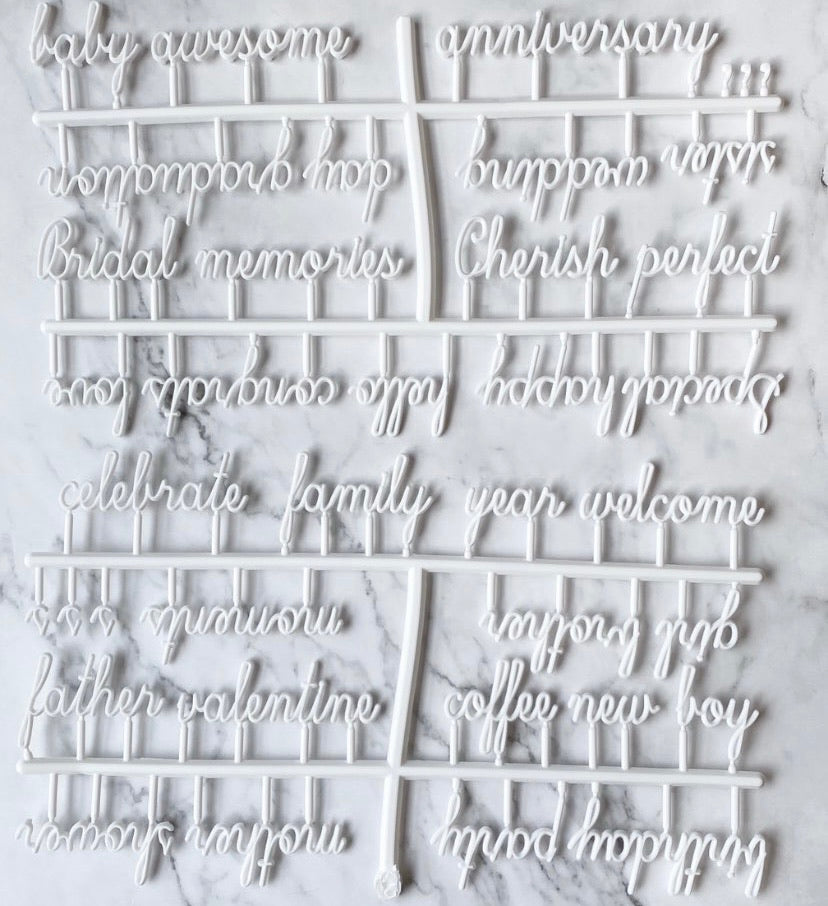 baby awesome anniversary ???
sister wedding day graduation
Bridal memories Cherish perfect
Special happy hello congrats love
celebrate family year welcome
girl brother moments s s s
father valentine coffee new boy
birthday party mother shower